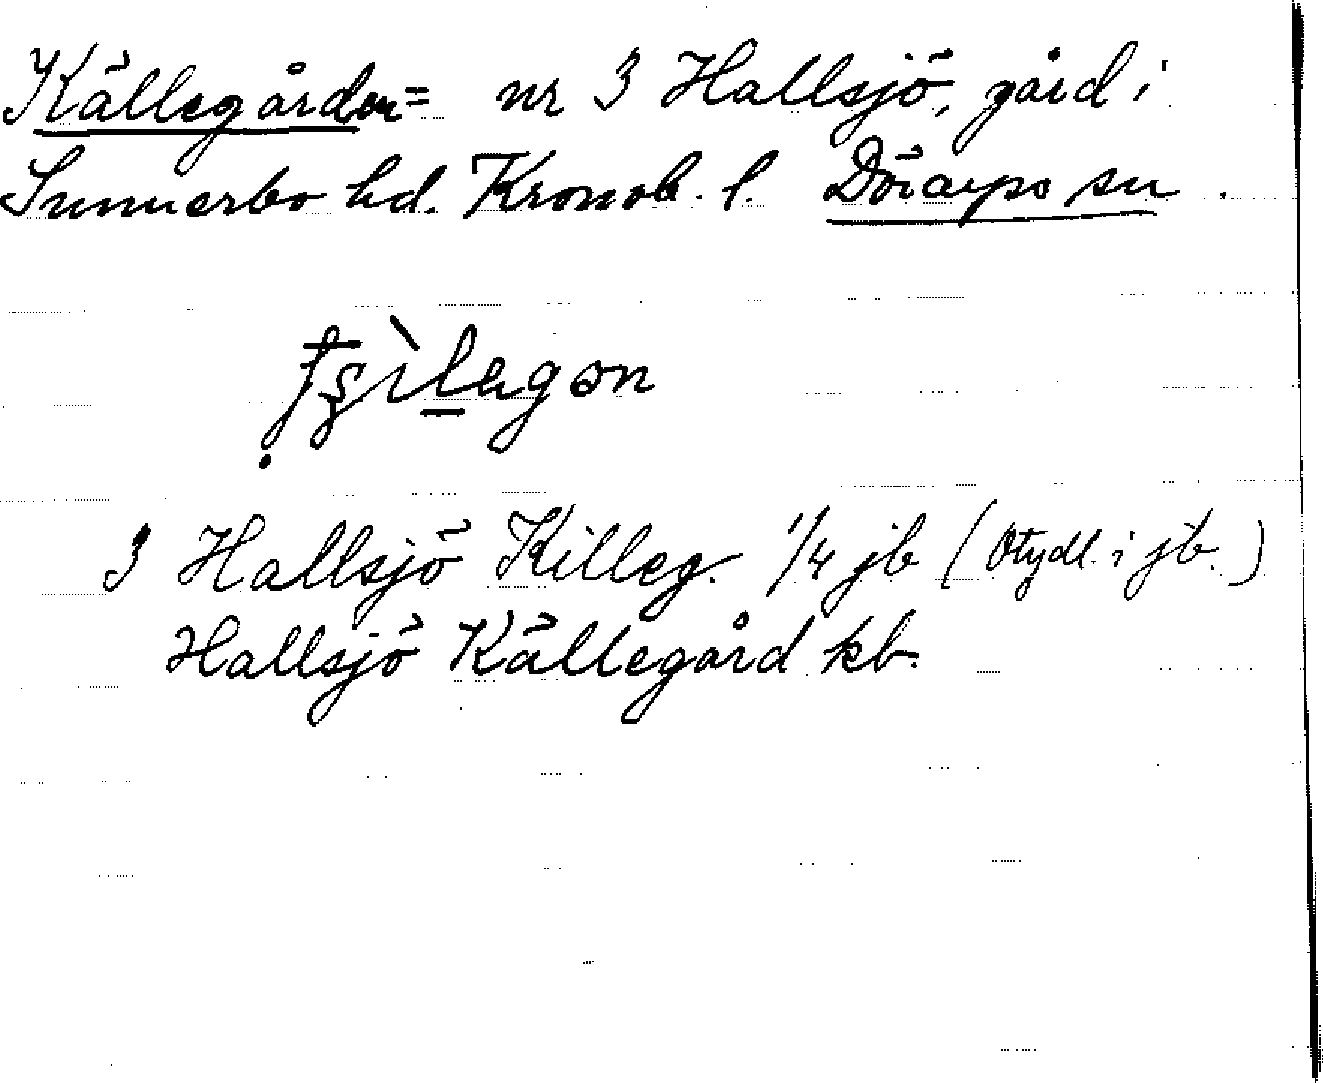 Källegården = nr 3 Hallsjö, gård i
Sunnerbo hd. Kronob. l. Dörarps sn.
3 Hallsjö Killeg. 1/4 jb (Otydl. i jb.)
Hallsjö Källegård kb.